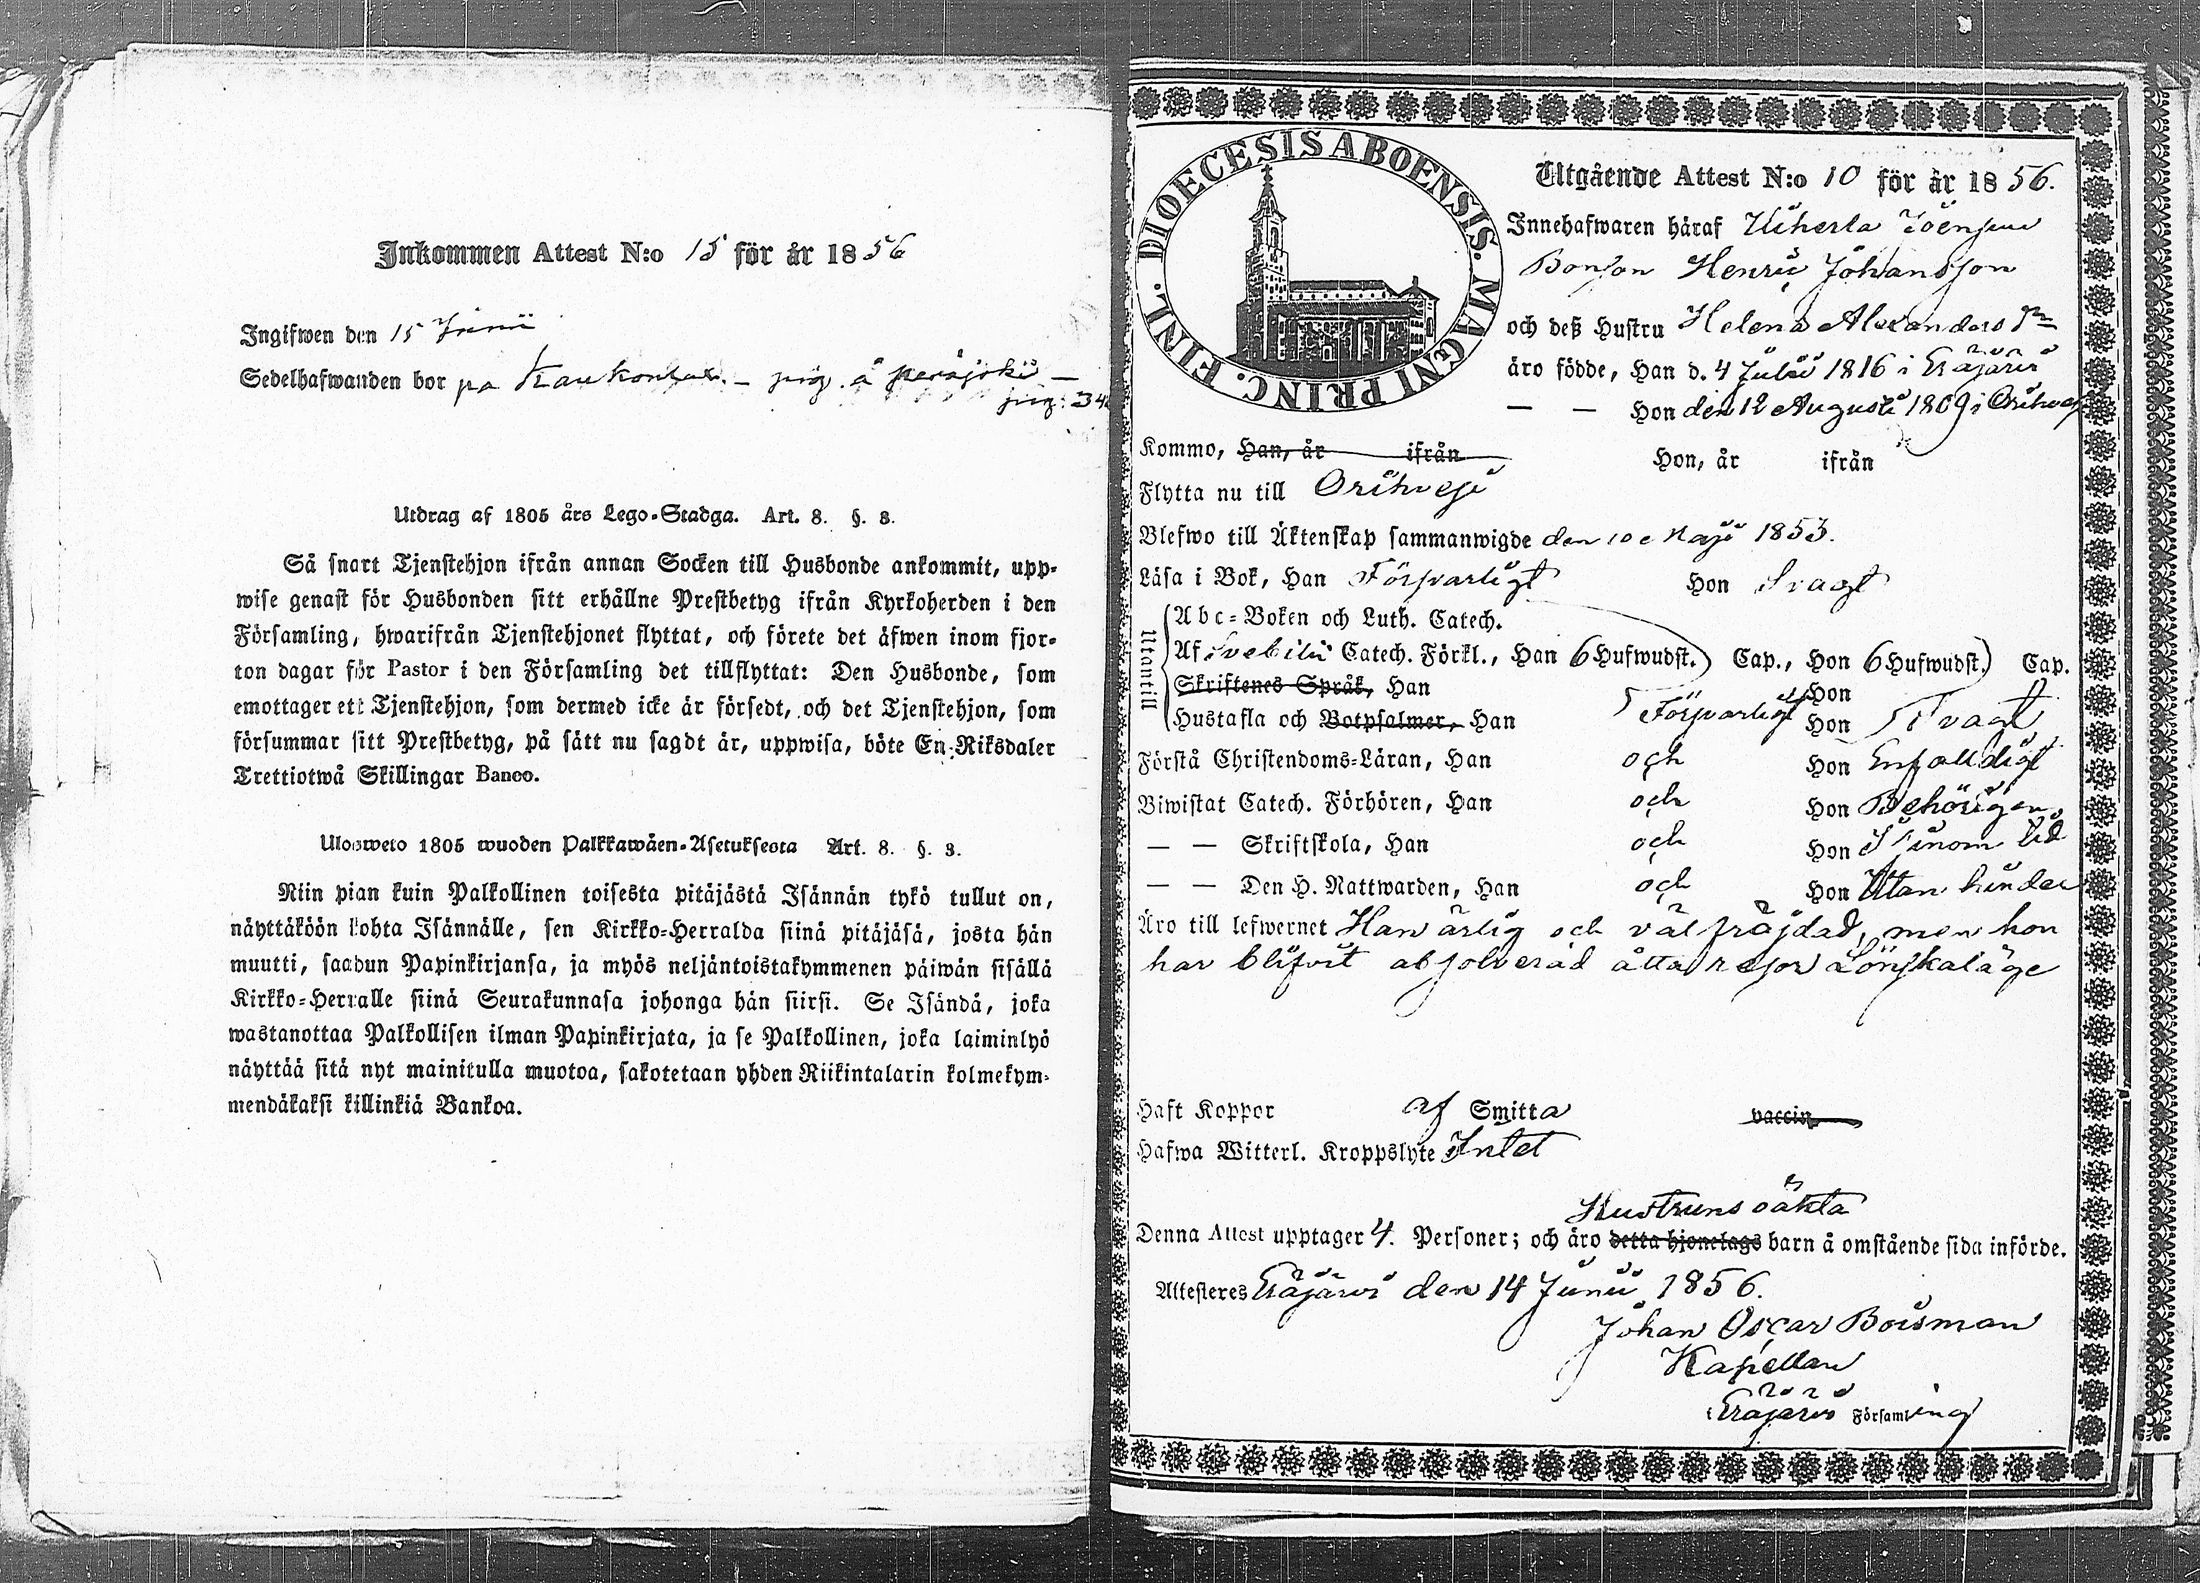 Inkommen Attest N:o 15 för år 1856
Ingifwen den 15 Junii
Sedelhafwanden bor på
Utdrag af 1805 års Lego-Stadga. Art. 8. §. 8.
Så snart Tjenstehjon ifrån annan Socken till Husbonde ankommit, upp-
wise genast för Husbonden sitt erhållne Prestbetyg ifrån Kyrkoherden i den
Församling, hwarifrån Tjenstehjonet flyttat, och förete det äfwen inom fjor-
ton dagar för Pastor i den Församling det tillflyttat: Den Husbonde, som
emottager ett Tjenstehjon, som dermed icke är försedt, och det Tjenstehjon, som
försummar sitt Prestbetyg, på sätt nu sagdt är, uppwisa, böte En Riksdaler
Trettiotwå Skillingar Banco.
Ulosweto 1805 wuoden Palkkawäen-Asetuksesta Art. 8. §. 8.
Niin pian kuin Palkollinen toisesta pitäjästä Isännän tykö tullut on,
näyttäköön kohta Isännälle, sen Kirkko-Herralda siinä pitäjäsä, josta hän
muutti, saadun Papinkirjansa, ja myös neljäntoistakymmenen päiwän sisällä
Kirkko-Herralle siinä Seurakunnasa johonga hän siirsi. Se Isändä, joka
wastanottaa Palkollisen ilman Papinkirjata, ja se Palkollinen, joka laiminlyö
näyttää sitä nyt mainitulla muotoa, sakotetaan yhden Riikintalarin kolmekym-
mendäkaksi killinkiä Bankoa.
DIOECESIS ABOENSIS. MAGNI PRINC. FINL.
Utgående Attest N:o 10 för år 1856.
Innehafwaren häraf
Bonson Henric Johansson
och deß Hustru Helena Alexanders Dr
äro födde, Han d. 4 Julii 1816 i Eräjärvi
— — Hon den 12 Augusti 1809 i Orihvesi
Kommo, Han, år ifrån Hon, år ifrån
Flytta nu till Orihvesi
Blefwo till Äktenskap sammanwigde den 10e Maji 1853.
Läsa i Bok, Han Försvarligt Hon Svagt
Utantill
Abc-Boken och Luth. Catech.
Af Svebilii Catech. Förkl., Han 6 Hufwudst.) Cap., Hon 6 Hufwudst.) Cap.
Skriftenes Språk, Han Hon
Hustafla och Botpsalmer, Han Försvarligt Hon Svagt
Förstå Christendoms-Läran, Han och Hon Enfalldigt
Biwistat Catech. Förhören, Han och Hon Behörigen
— — Skriftskola, Han och Hon Sin tid
— — Den H. Nattwarden, Han och Hon Utan hinder
Äro till lefwernet Han ärlig och väl fräjdad, men hon
har blifvit absolverad åtta resor Lönskaläge
Haft Koppor af Smitta vaccin
Hafwa Witterl. Kroppslyte Intet
Hustruns oäkta
Denna Attest upptager 4. Personer; och äro detta hjonelags barn å omstående sida införde.
Attesteres Eräjärvi den 14 Junii 1856.
Johan Oscar Boisman
Kapellan
i Eräjärvi Församling